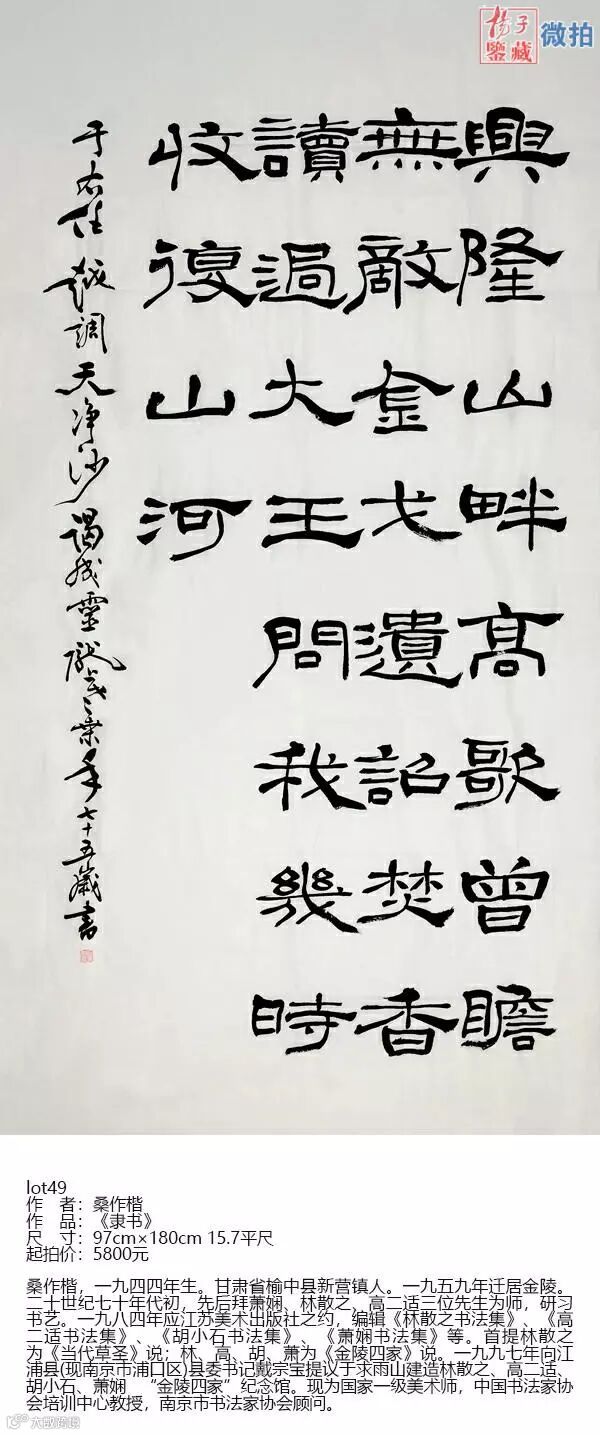 揚子
鑒藏
微拍
興隆山畔高歌曾瞻
無敵金戈遺詔焚香
讀過大王問我幾時
收復山河
于右任越調天净沙謁成靈 年七十五歲書
lot49
作　者：桑作楷
作　品：《隶书》
尺　寸：97cm×180cm 15.7平尺
起拍价：5800元
桑作楷，一九四四年生。甘肃省榆中县新营镇人。一九五九年迁居金陵。
二十世纪七十年代初，先后拜萧娴、林散之、高二适三位先生为师，研习
书艺。一九八四年应江苏美术出版社之约，编辑《林散之书法集》、《高
二适书法集》、《胡小石书法集》、《萧娴书法集》等。首提林散之
为《当代草圣》说；林、高、胡、萧为《金陵四家》说。一九九七年向江
浦县(现南京市浦口区)县委书记戴宗宝提议于求雨山建造林散之、高二适、
胡小石、萧娴 “金陵四家”纪念馆。现为国家一级美术师，中国书法家协
会培训中心教授，南京市书法家协会顾问。